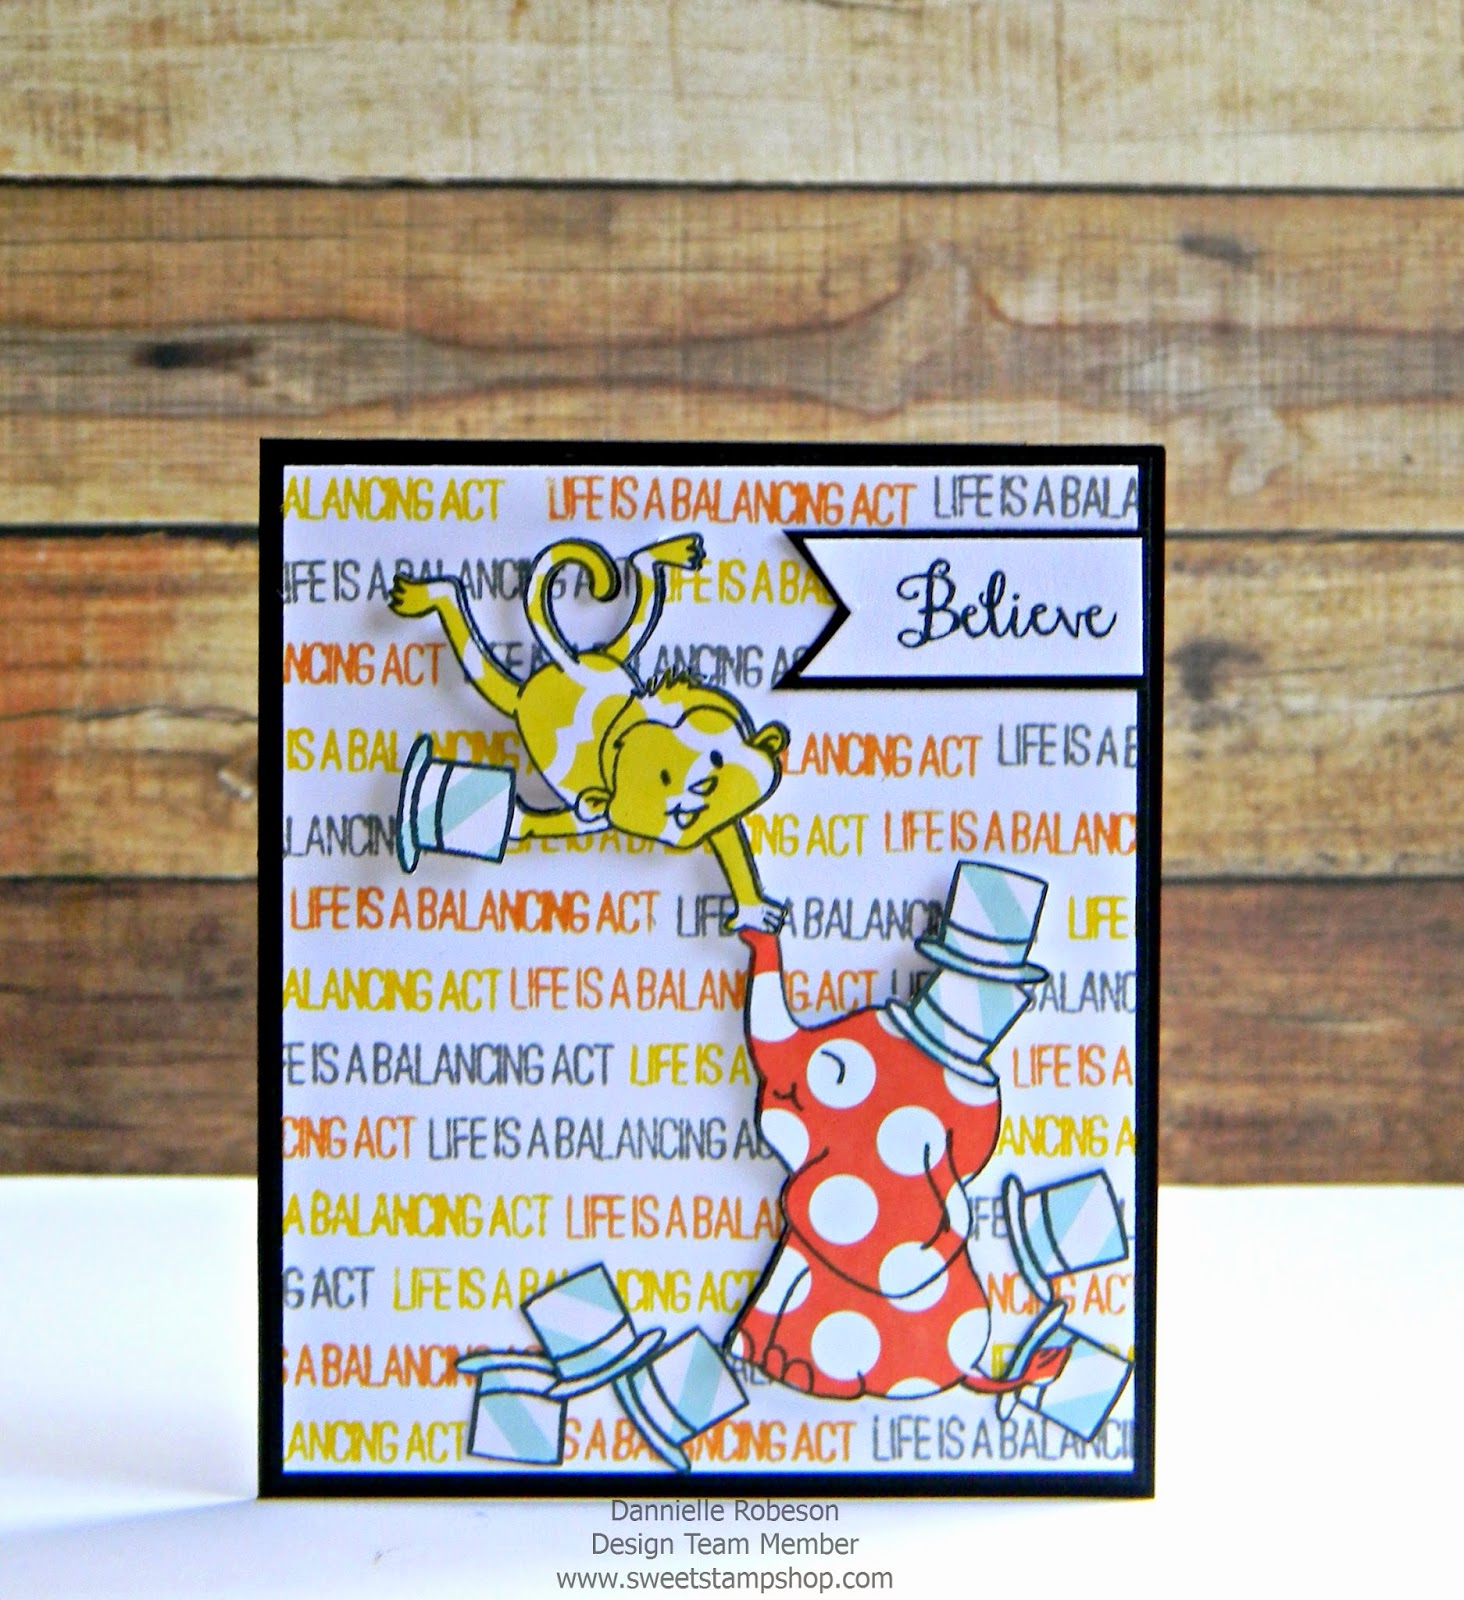 ALANCING ACT LIFE IS A BALANCING ACT LIFE IS A BALA
LIFE IS A BALANCING ACT LIFE IS A BALA
Believe
NCING ACT LIFE IS A BALANCING AC
IS A BALANCING LANCING ACT LIFE IS A B
LANCING ACT LIFE IS A BALANC
LIFE IS A BALANCING ACT LIFE IS A BALANCING LIFE
ALANCING ACT LIFE IS A BALANCING ACT LIFE BALANC
FE IS A BALANCING ACT LIFE IS A LIFE IS A
CING ACT LIFE IS A BALANCING AC ANCING A
A BALANCING ACT LIFE IS A BALA IFE
G ACT LIFE IS A B NCING ACT NCING AC
S A BALANCING
ANCING ACT S A BALANCING ACT LIFE IS A BALANCI
Dannielle Robeson
Design Team Member
www.sweetstampshop.com